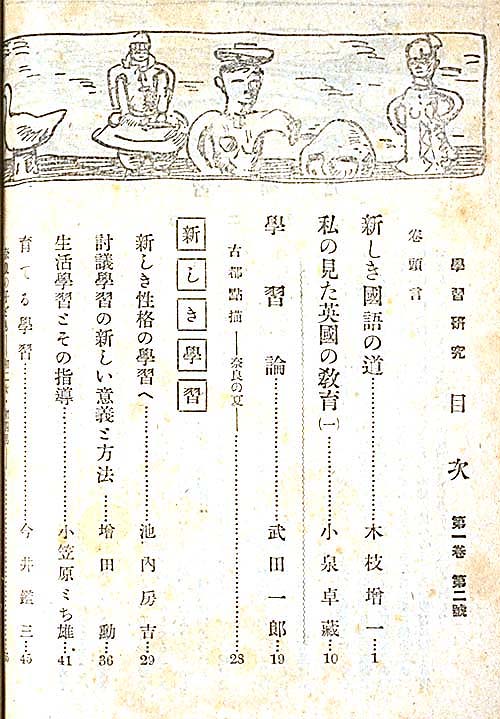 學習研究 目次 第一卷 第二號
卷頭言
新しき國語の道……木枝增一…1
私の見た英國の教育(一)……小泉卓藏…10
學習論……武田一郎…19
古都點描——奈良の夏——……28
新しき學習
新しき性格の學習へ……池內房吉…29
討議學習の新しい意義と方法……增田勳…36
生活學習とその指導……小笠原みち雄…41
育てる學習……今井鑑三…45